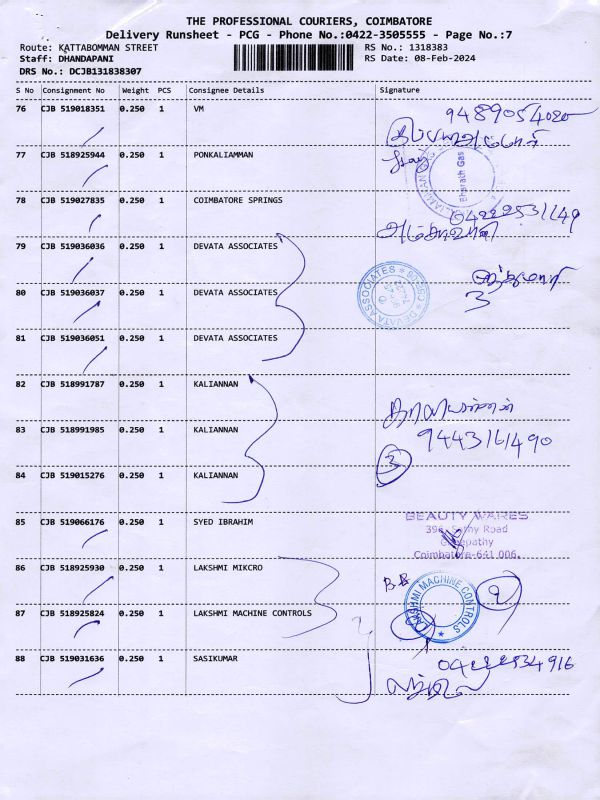 THE PROFESSIONAL COURIERS, COIMBATORE
Delivery Runsheet - PCG - Phone No.:0422-3505555 - Page No.:7
Route: KATTABOMMAN STREET
RS No.: 1318383
Staff: DHANDAPANI
RS Date: 08-Feb-2024
DRS No.: DCJB131838307
S No Consignment No Weight PCS Consignee Details Signature
76 CJB 519018351 0.250 1 VM
9489054080
77 CJB 518925944 0.250 1 PONKALIAMMAN
Bharath Gas
78 CJB 519027835 0.250 1 COIMBATORE SPRINGS
04222531149
79 CJB 519036036 0.250 1 DEVATA ASSOCIATES
80 CJB 519036037 0.250 1 DEVATA ASSOCIATES
DEVATA ASSOCIATES
3
81 CJB 519036051 0.250 1 DEVATA ASSOCIATES
82 CJB 518991787 0.250 1 KALIANNAN
காளியண்ணன்
83 CJB 518991985 0.250 1 KALIANNAN
9443161490
84 CJB 519015276 0.250 1 KALIANNAN
3
85 CJB 519066176 0.250 1 SYED IBRAHIM
BEAUTY WARES
396, Sathy Road
Ganapathy
Coimbatore-641 006.
86 CJB 518925930 0.250 1 LAKSHMI MIKCRO
2
87 CJB 518925824 0.250 1 LAKSHMI MACHINE CONTROLS
LAKSHMI MACHINE CONTROLS
88 CJB 519031636 0.250 1 SASIKUMAR
04222534916